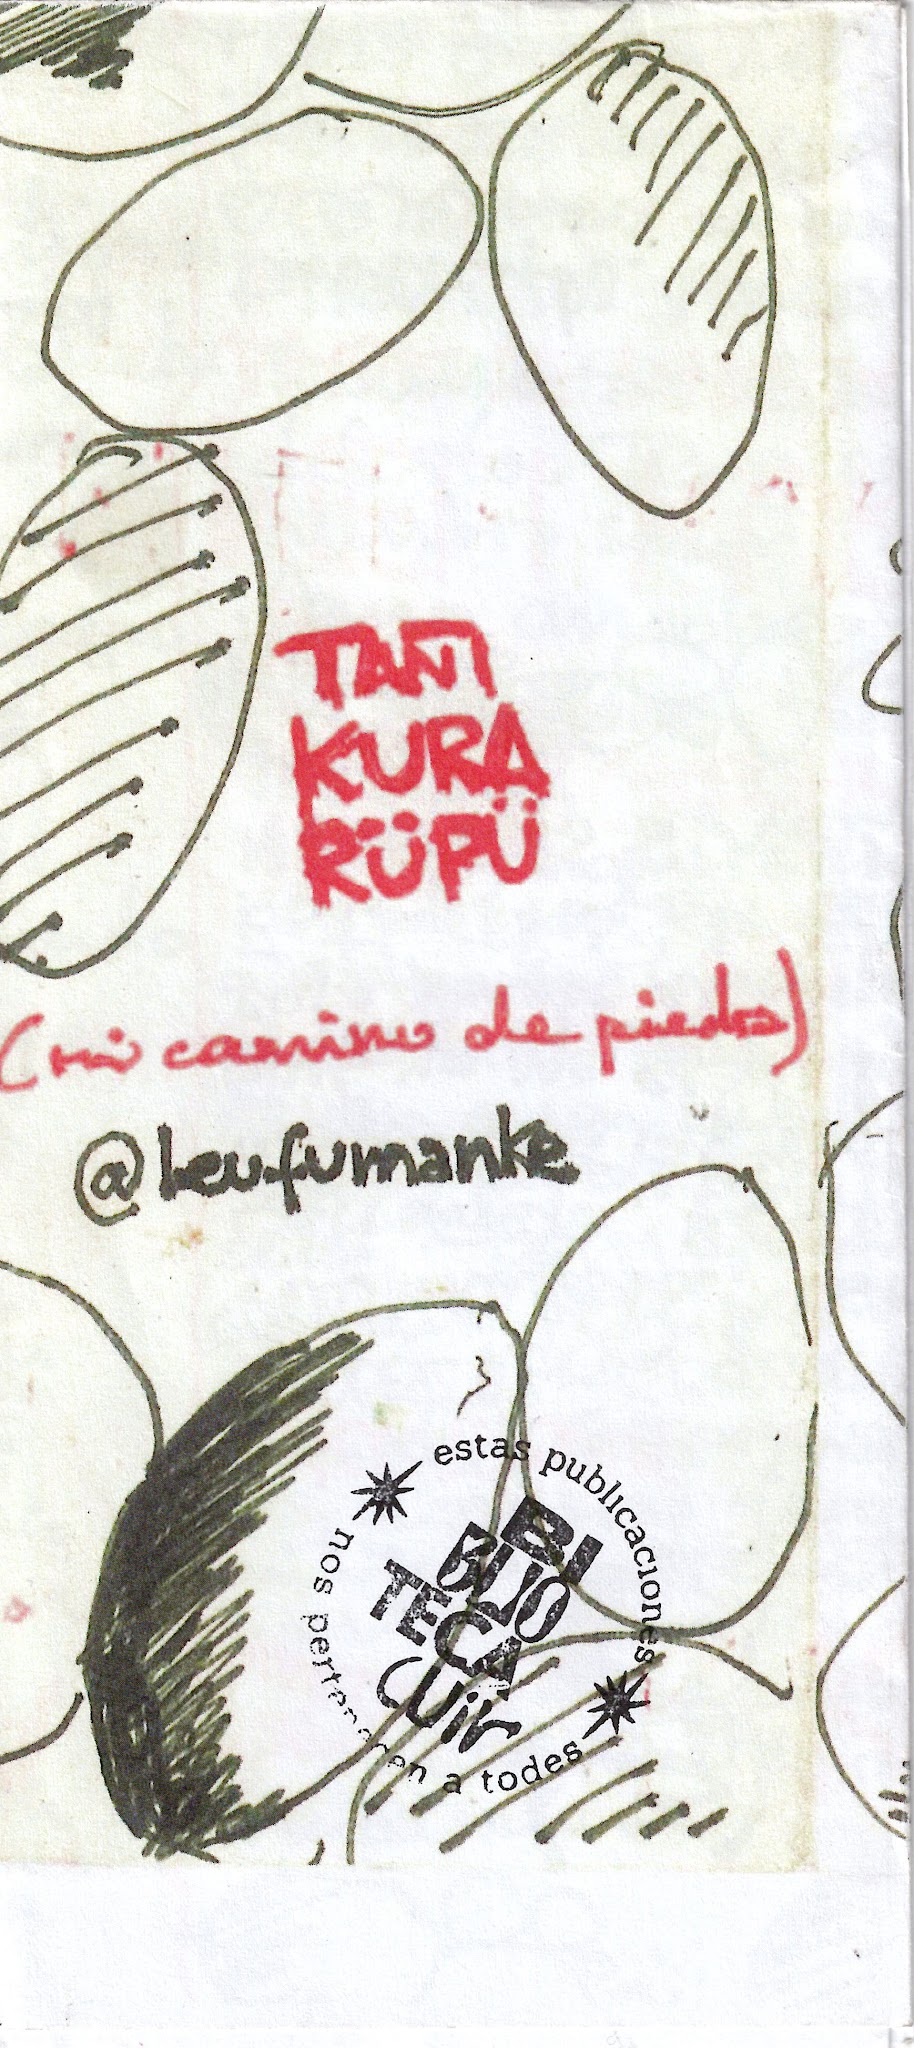 TAÑI
KURA
RÜPÜ
(mi camino de piedra)
@leufumanke
estas publicaciones
nos pertenecen a todes
BI
BIJO
TECA
CUir